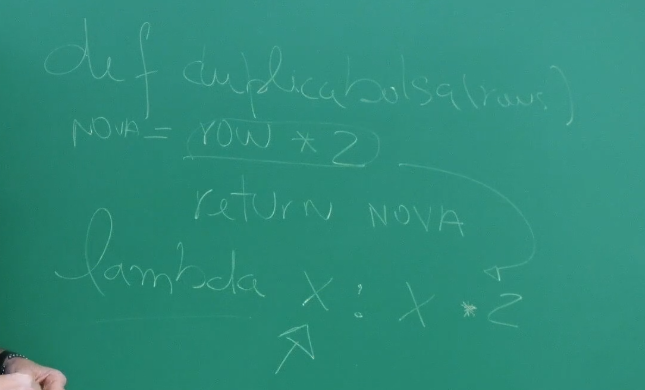 def duplicabolsa(row:)
NOVA = ROW * 2
return NOVA
lambda X : X * 2